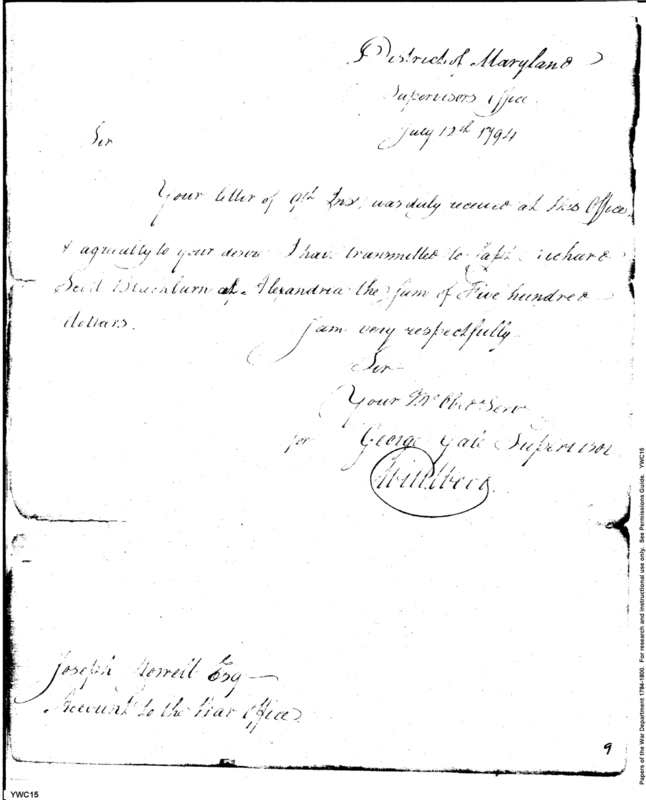 District of Maryland
Supervisors Office
July 12th 1794
Sir
Your letter of 9th Inst. was duly received at this Office,
& agreeably to your desire I have transmitted to Capt. Richard
Scott Blackburn at Alexandria the sum of Five hundred
dollars. I am very respectfully
Sir
Your Mo. Obed. Serv
for George Gale Supervisor
Joseph Howell Esq
Account to the War Office
9
YWC15
Papers of the War Department 1784-1800. For research and instructional use only. See Permissions Guide. YWC15